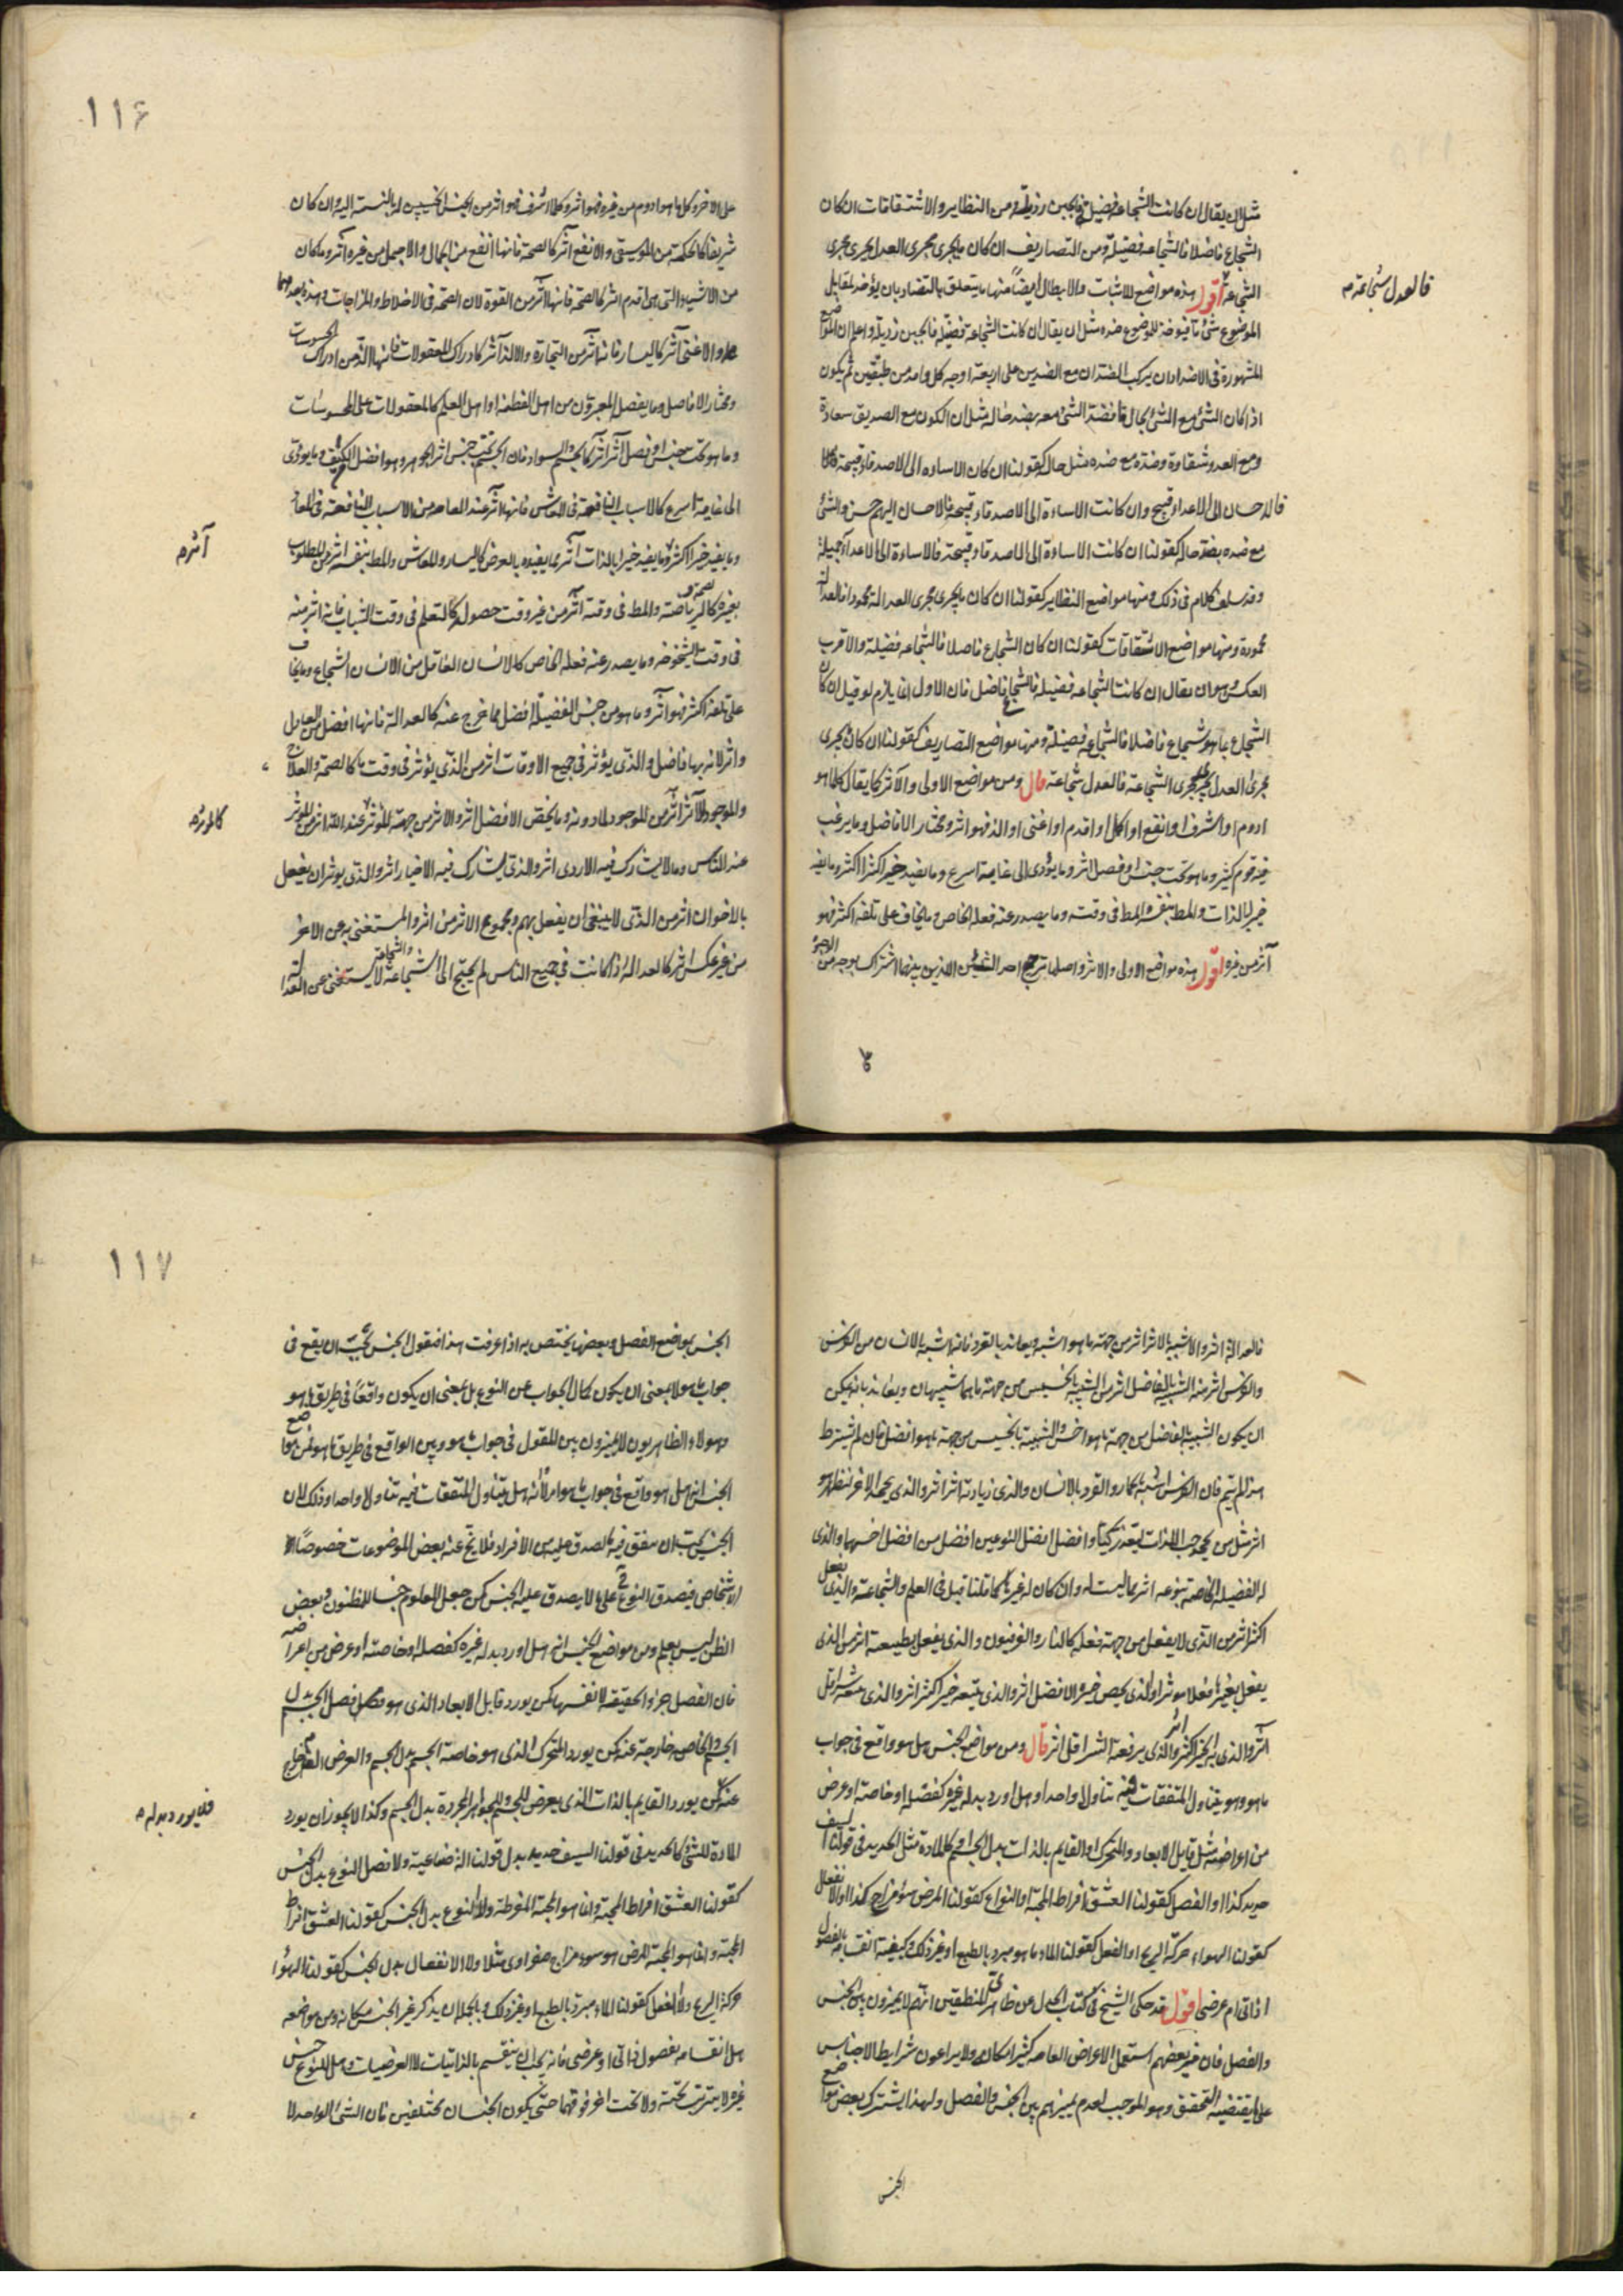 مثلا ان يقال ان كانت الشجاعة فضيلة فالجبن رذيلة ومن النظاير والاشتقاقات ان كان
الشجاع فاضلا فالشجاعة فضيلة ومن التصاريف ان كان ما يجرى مجرى العدل يجرى مجرى
الشجاعة اقول هذه مواضع للاثبات والابطال ايضا منها ما يتعلق بالتضاد بان يؤخذ لمقابل
فالعدل شجاعة م
الموضوع شئ ما فيوضع للموضوع ضده مثل ان يقال ان كانت الشجاعة فضيلة فالجبن رذيلة واعلم ان المواضع
المشهورة فى الاضداد ان يركب الضدان مع الضدين على اربعة اوجه كل واحد من طبقتين ثم يكون
اذا كان الشئ مع الشئ بحال فضد الشئ معه بضد حاله مثل ان الكون مع الصديق سعادة
ومع العدو شقاوة وضده مع ضده مثل حاله كقولنا ان كان الاساءة الى الاصدقاء قبيحة
فالاحسان الى الاعداء قبيح وان كانت الاساءة الى الاصدقاء قبيحة فالاحسان اليهم حسن والشئ
مع ضده بضد حاله كقولنا ان كانت الاساءة الى الاصدقاء قبيحة فالاساءة الى الاعداء جميلة
وقد سلف كلام فى ذلك ومنها مواضع النظاير كقولنا ان كان ما يجرى مجرى العدالة محمودا فالعدالة
محمودة ومنها مواضع الاشتقاقات كقولنا ان كان الشجاع فاضلا فالشجاعة فضيلة والاقرب
العكس وهو ان يقال ان كانت الشجاعة فضيلة فالشجاع فاضل فان الاول انما يلزم لو قيل ان كان
الشجاع بما هو شجاع فاضلا فالشجاعة فضيلة ومنها مواضع التصاريف كقولنا ان كان ما يجرى
مجرى العدل يجرى مجرى الشجاعة فالعدل شجاعة قال ومن مواضع الاولى والآثر كما يقال كلما هو
ادوم او اشرف او انفع او اكمل او اقدم او اغنى او الذ فهو اثر ومختار الافاضل وما يرغب
فيه قوم كثير وما هو تحت جنس او فصل اثر وما يؤدى الى غاية اسرع وما يفيد خيرا اكثر وما يفيد
خيرا بالذات والمط بنفسه والمط فى وقته وما يصدر عنه فعله الخاص وما يخاف على تلفه اكثر فهو
آثر من غيره اقول هذه مواضع الاولى والاثر واصلها ترجيح احد الشيئين اللذين بينهما اشتراك بوجه من الوجوه
١١۶
على الاخر وكل ما هو ادوم من غيره فهو اثر وكلما اشرف فهو اثر من الجنس الخسيس له بالنسبة اليه وان كان
شريفا كالحكمة من الموسيقى والانفع آثر كالصحة فانها انفع من الجمال والاجمل من غيره آثر وما كان
من الاشياء التى هى اقدم اثر كالصحة فانها آثر من القوة لان الصحة فى الاخلاط والمزاجات وهذه بعدهما
والاغنى آثر كاليسار فانه آثر من التجارة والالذ آثر كادراك المعقولات فانها الذ من ادراك المحسوسات
ومختار الافاضل وما يفضل المبرزون من اهل الفطنة او اهل العلم كالمعقولات على المحسوسات
وما هو تحت جنس او فصل آثر اثر كالجسم والسواد فان الجسم تحت جنس اثر الجوهر وهو افضل الكيف وما يؤدى
الى غاية اسرع كالاسباب النافعة فى المعاش فانها آثر عند العامة من الاسباب النافعة فى المعاد
وما يفيد خيرا اكثر وما يفيد خيرا بالذات آثر مما يفيده بالعرض كاليسار والمعاش والمط بنفسه اثر من المطلوب
آثر م
بغيره كالصحة والرياضة والمط فى وقته آثر من غير وقت حصوله كالتعلم فى وقت الشباب فانه اثر منه
فى وقت الشيخوخة وما يصدر عنه فعله الخاص كالانسان العاقل من الانسان الشجاع وما يخاف
على تلفه اكثر فهو آثر وما هو من جنس الفضيلة افضل مما خرج عنه كالعدالة فانها افضل من العادل
واثر لانه بها فاضل والذى يؤثر فى جميع الاوقات اثر من الذى يؤثر فى وقت ما كالصحة والعلاج
والموجود للآثر آثر من الموجود لما دونه وما يخص الافضل اثر والاثر من جهة المؤثر عند الله اثر من المؤثر
كالمؤثر م
عند الناس وما لا يشارك فيه الاردى اثر والذى يشارك فيه الاخيار اثر والذى يوثر ان يفعل
بالاخوان اثر من الذى لا ينبغى ان يفعل بهم ومجموع الاثر من اثر والمستغنى به عن الاخر
من غير عكس اثر كالعدالة اذا كانت فى جميع الناس لم يحتج الى الشجاعة والشجاعة لا يستغنى عن العدالة
فالعدالة اثر والاشبه بالاثر اثر من جهة ما هو اشبه ويعاند بالقرد فانه اشبه بالانسان من الفرس
والفرس اثر منه الشبيه بالفاضل اثر من الشبيه بالخسيس من جهة ما هما شبيهان ويعاند بانه يمكن
ان يكون الشبيه بالفاضل من جهة ما هو اخس والشبيه بالخسيس من جهة ما هو افضل فان لم يشترط
هذا لم يتم فان الفرس اشبه بالحمار والقرد بالانسان والذى زيادته اثر اثر والذى يحمد الاخر لنظره هو
اثر مثل من يحب اللذات وافضل افضل النوعين افضل من افضل اخسهما والذى
له الفضيلة الخاصة بنوعه اثر مما ليست له وان كان له غيرها كما قلنا قبل فى العلم والشجاعة والذى يفعل
اكثر اثر من الذى لا يفعل من جهة فعله كالنار والفرفيون والذى يفعل بطبيعته اثر من الذى
يفعل بغيره فعلا مؤثرا والذى يخص خير الافضل اثر والذى يتبعه خير اكثر اثر والذى يتبعه شر اقل
آثر والذى به الخير اكثر اثر والذى يرفعه الشر اقل اثر قال ومن مواضع الجنس هل هو واقع فى جواب
ما هو وهو يتناول المتفقات فيه تناولا واحدا وهل اورد بدله غيره كفصله او خاصة او عرض
من اعراضه مثل قابل الابعاد والمتحرك او القايم بالذات بدل الجسم وكالمادة مثل الحديد فى قولنا السيف
حديد كذا او الفصل كقولنا العشق افراط المحبة او النوع كقولنا المرض سوء مزاج كذا او الانفعال
كقولنا الهواء حركة الريح او الفعل كقولنا الماء ما هو مبرد بالطبع او غير ذلك وكيفية انقسامه بالفصول
اذاتى ام عرضى اقول قد حكى الشيخ فى كتاب الجدل عن ظاهرى المنطقيين انهم لا يميزون بين الجنس
والفصل فان بعضهم استعمل الاعراض العامة كثيرا مكان ولا يراعون شرايط الاجناس
على ما يقتضيه التحقيق وهو الموجب لعدم تمييزهم بين الجنس والفصل ولهذا يشترك بعض مواضع
الجنس
١١٧
الجنس بمواضع الفصل وبعضها يختص به اذا عرفت هذا فنقول الجنس يجب ان يقع فى
جواب ما هو لا بمعنى ان يكون كمال الجواب عن النوع بل بمعنى ان يكون واقعا فى طريق ما هو
وهولاء الظاهريون لا يميزون بين المقول فى جواب ما هو وبين الواقع فى طريق ما هو فمن مواضع
الجنس انه هل هو واقع فى جواب ما هو ام لا وانه هل يتناول المتفقات فيه تناولا واحدا وذلك لان
الجنس يجب ان يتفق فيه ما يصدق عليه من الافراد فلا يخ عنه بعض الموضوعات خصوصا
الاشخاص فيصدق النوع على ما لا يصدق عليه الجنس كمن جعل المعلوم جنسا للمظنون وبعض
الظن ليس بعلم ومن مواضع الجنس انه هل اورد بدله غيره كفصله او خاصته او عرض من اعراضه
فان الفصل جزء الحقيقة لا نفسها كمن يورد قابل الابعاد الذى هو فصل الجسم بدل
الجسم والخاصة خارجة عنه كمن يورد المتحرك الذى هو خاصة الجسم بدل الجسم والعرض العام خارج
عنه كمن يورد القايم بالذات الذى يعرض للجسم وللجواهر المجردة بدل الجسم وكذا لا يجوز ان يورد
فلا يورد بدله م
المادة للشئ كالحديد فى قولنا السيف حديد بدل قولنا آلة صناعية ولا فصل النوع بدل الجنس
كقولنا العشق افراط المحبة وانما هو المحبة المفرطة ولا النوع بدل الجنس كقولنا العشق افراط
المحبة وانما هو المحبة المرض هو سوء مزاج صفراوى مثلا ولا الانفعال بدل الجنس كقولنا الهواء
حركة الريح ولا الفعل كقولنا الماء مبرد بالطبع او غير ذلك وبالجملة ان يذكر غير الجنس مكانه ومن مواضعه
هل انقسامه بفصول ذاتى او عرضى فانه يجب ان ينقسم بالذاتيات لا العرضيات وهل للنوع جنس
غيره لا يترتب تحته ولا تحت اخر فوقهما حتى يكون الجنسان مختلفين فان الشئ الواحد لا